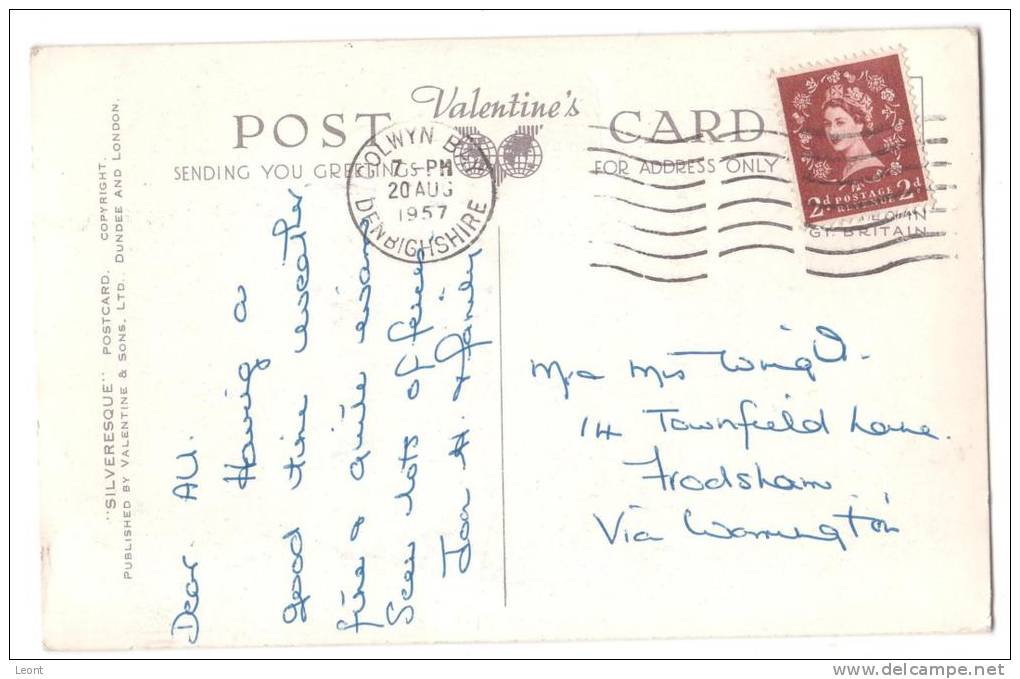 POST Valentine's CARD
SENDING YOU GREETINGS FOR ADDRESS ONLY
COLWYN B
7 - PM
20 AUG
1957
DENBIGHSHIRE
2d POSTAGE 2d
REVENUE
GT. BRITAIN
"SILVERESQUE" POSTCARD. COPYRIGHT.
PUBLISHED BY VALENTINE & SONS, LTD. DUNDEE AND LONDON.
Dear All.
Having a
good time weather
fine & quite warm
Seen lots of
Joan H & family
Mr & Mrs Wright.
14 Townfield Lane.
Frodsham
Via Warrington
Leont
www.delcampe.net